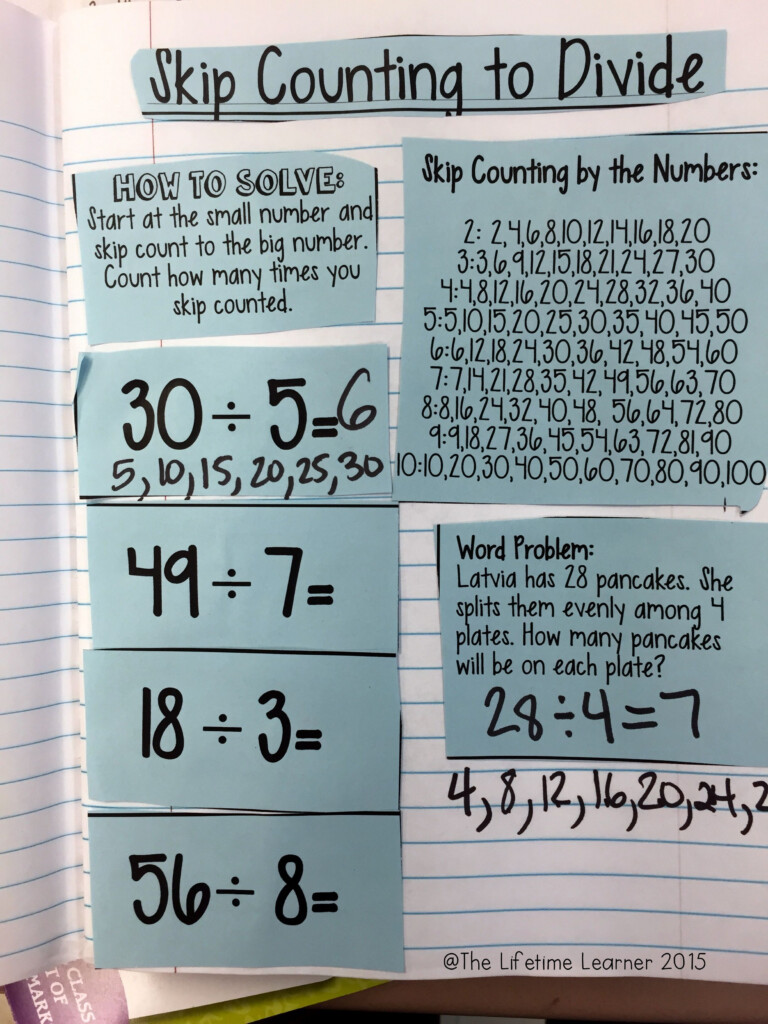 Skip Counting to Divide
HOW TO SOLVE:
Start at the small number and
skip count to the big number.
Count how many times you
skip counted.
Skip Counting by the Numbers:
2: 2,4,6,8,10,12,14,16,18,20
3:3,6,9,12,15,18,21,24,27,30
4:4,8,12,16,20,24,28,32,36,40
5:5,10,15,20,25,30,35,40,45,50
6:6,12,18,24,30,36,42,48,54,60
7:7,14,21,28,35,42,49,56,63,70
8:8,16,24,32,40,48, 56,64,72,80
9:9,18,27,36,45,54,63,72,81,90
10:10,20,30,40,50,60,70,80,90,100
30÷5=6
5,10,15,20,25,30
49÷7=
18÷3=
56÷8=
Word Problem:
Latvia has 28 pancakes. She
splits them evenly among 4
plates. How many pancakes
will be on each plate?
28÷4=7
4,8,12,16,20,24,2
@The Lifetime Learner 2015
CLASS
T OF
MARK